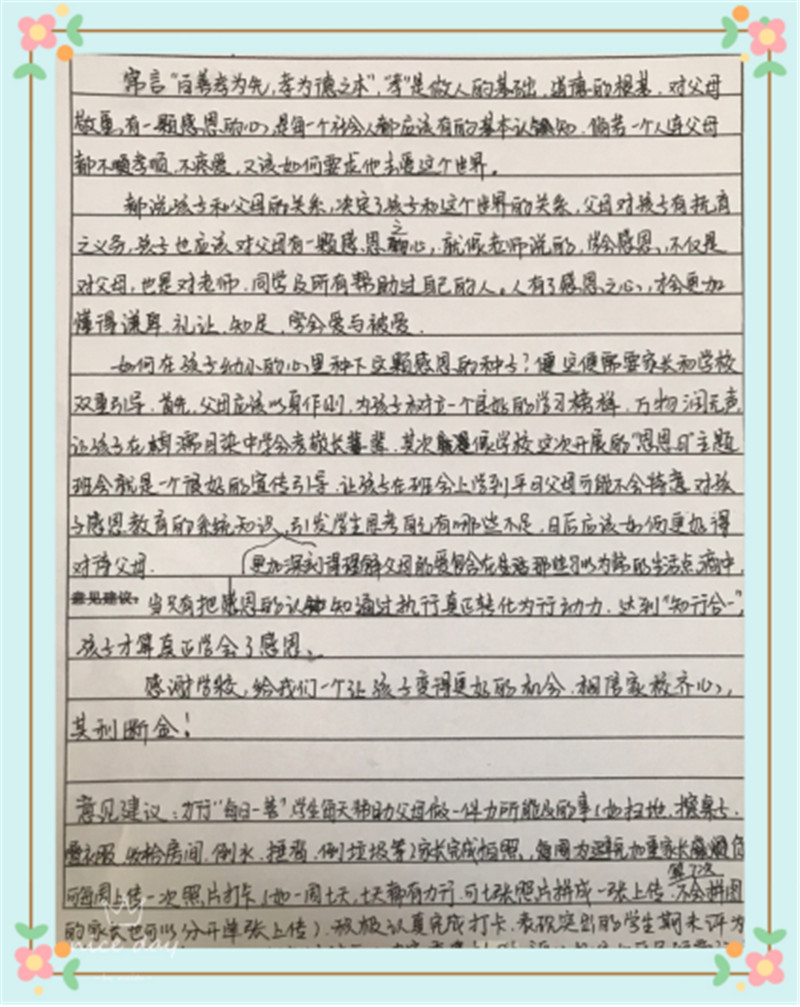 常言"百善孝为先,孝为德之本","孝"是做人的基础,道德的根基。对父母
敬重,有一颗感恩的心,是每个社会人都应该有的基本认知,倘若一个人连父母
都不顺孝顺,不疼爱,又该如何要求他去爱这个世界。
都说孩子和父母的关系,决定了孩子和这个世界的关系,父母对孩子有抚育
之义务,孩子也应该对父母有一颗感恩之心,就像老师说的,学会感恩,不仅是
对父母,也是对老师、同学及所有帮助过自己的人。人有了感恩之心,才会更加
懂得谦卑、礼让、知足,学会爱与被爱。
如何在孩子幼小的心里种下这颗感恩的种子?便需要家长和学校
双重引导,首先,父母应该以身作则,为孩子树立一个良好的学习榜样,万物润无声,
让孩子在耳濡目染中学会孝敬长辈,其次像学校这次开展的"感恩月"主题
班会就是一个很好的宣传引导,让孩子在班会上学到平日父母可能不会特意对孩
子感恩教育的系统知识,引发学生思考自己有哪些不足,日后应该如何更好得
对待父母。更加深刻得理解父母的爱包含在那些习以为常的生活点滴中,
意见建议:当只有把感恩的认知通过执行真正转化为行动力,达到"知行合一",
孩子才算真正学会了感恩。
感谢学校,给我们一个让孩子变得更好的机会,相信家校齐心,
其利断金!
意见建议:力行"每日一善"学生每天帮助父母做一件力所能及的事(如扫地、擦桌子、
叠衣服、收拾房间、倒水、捶背、倒垃圾等)家长完成拍照,每周为避免加重家长负
可每周上传一次照片打卡(如一周七天,七天都有力行,可七张照片拼成一张上传,不会拼图
的家长也可以分开单张上传)积极认真完成打卡、表现突出的学生期末评为
nice day